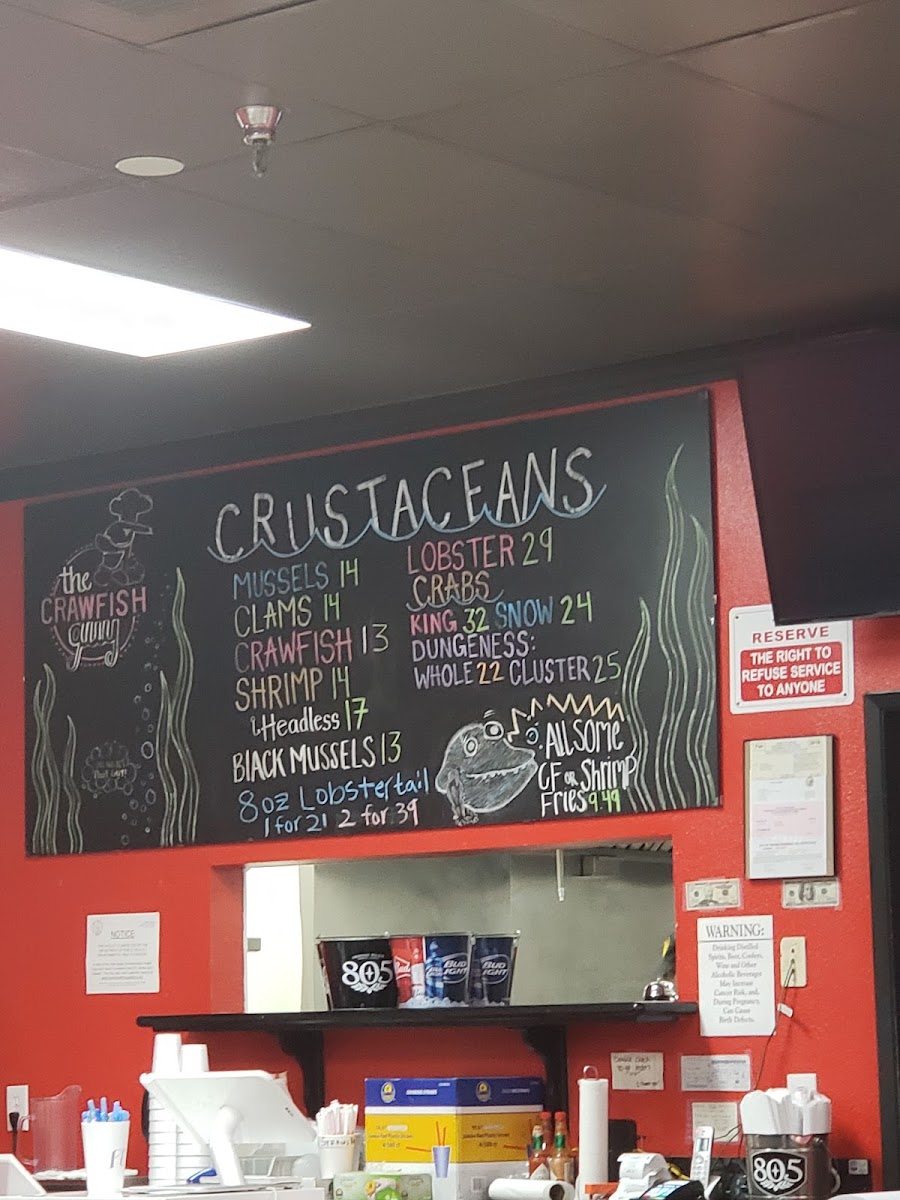 CRUSTACEANS
the
CRAWFISH
MUSSELS 14
CLAMS 14
CRAWFISH 13
SHRIMP 14
Headless 17
BLACK MUSSELS 13
8oz Lobstertail
1 for 21 2 for 39
LOBSTER 29
CRABS
KING 32 SNOW 24
DUNGENESS:
WHOLE 22 CLUSTER 25
ALLSOME
CF OR Shrimp
Fries 9.49
RESERVE
THE RIGHT TO
REFUSE SERVICE
TO ANYONE
NOTICE
WARNING:
Drinking Distilled
Spirits, Beer, Coolers,
Wine and Other
Alcoholic Beverages
May Increase
Cancer Risk, and,
During Pregnancy,
Can Cause
Birth Defects.
805
Bud
BUD
LIGHT
BUD
LIGHT
805